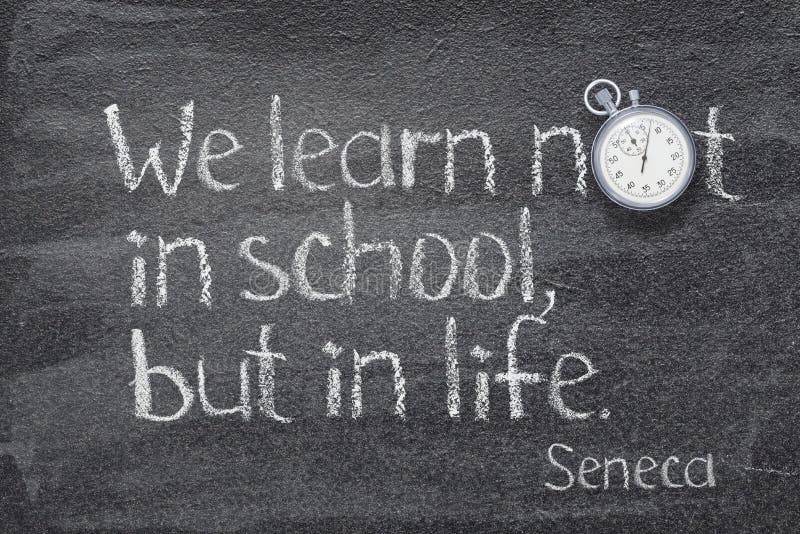 We learn not
in school,
but in life.
Seneca